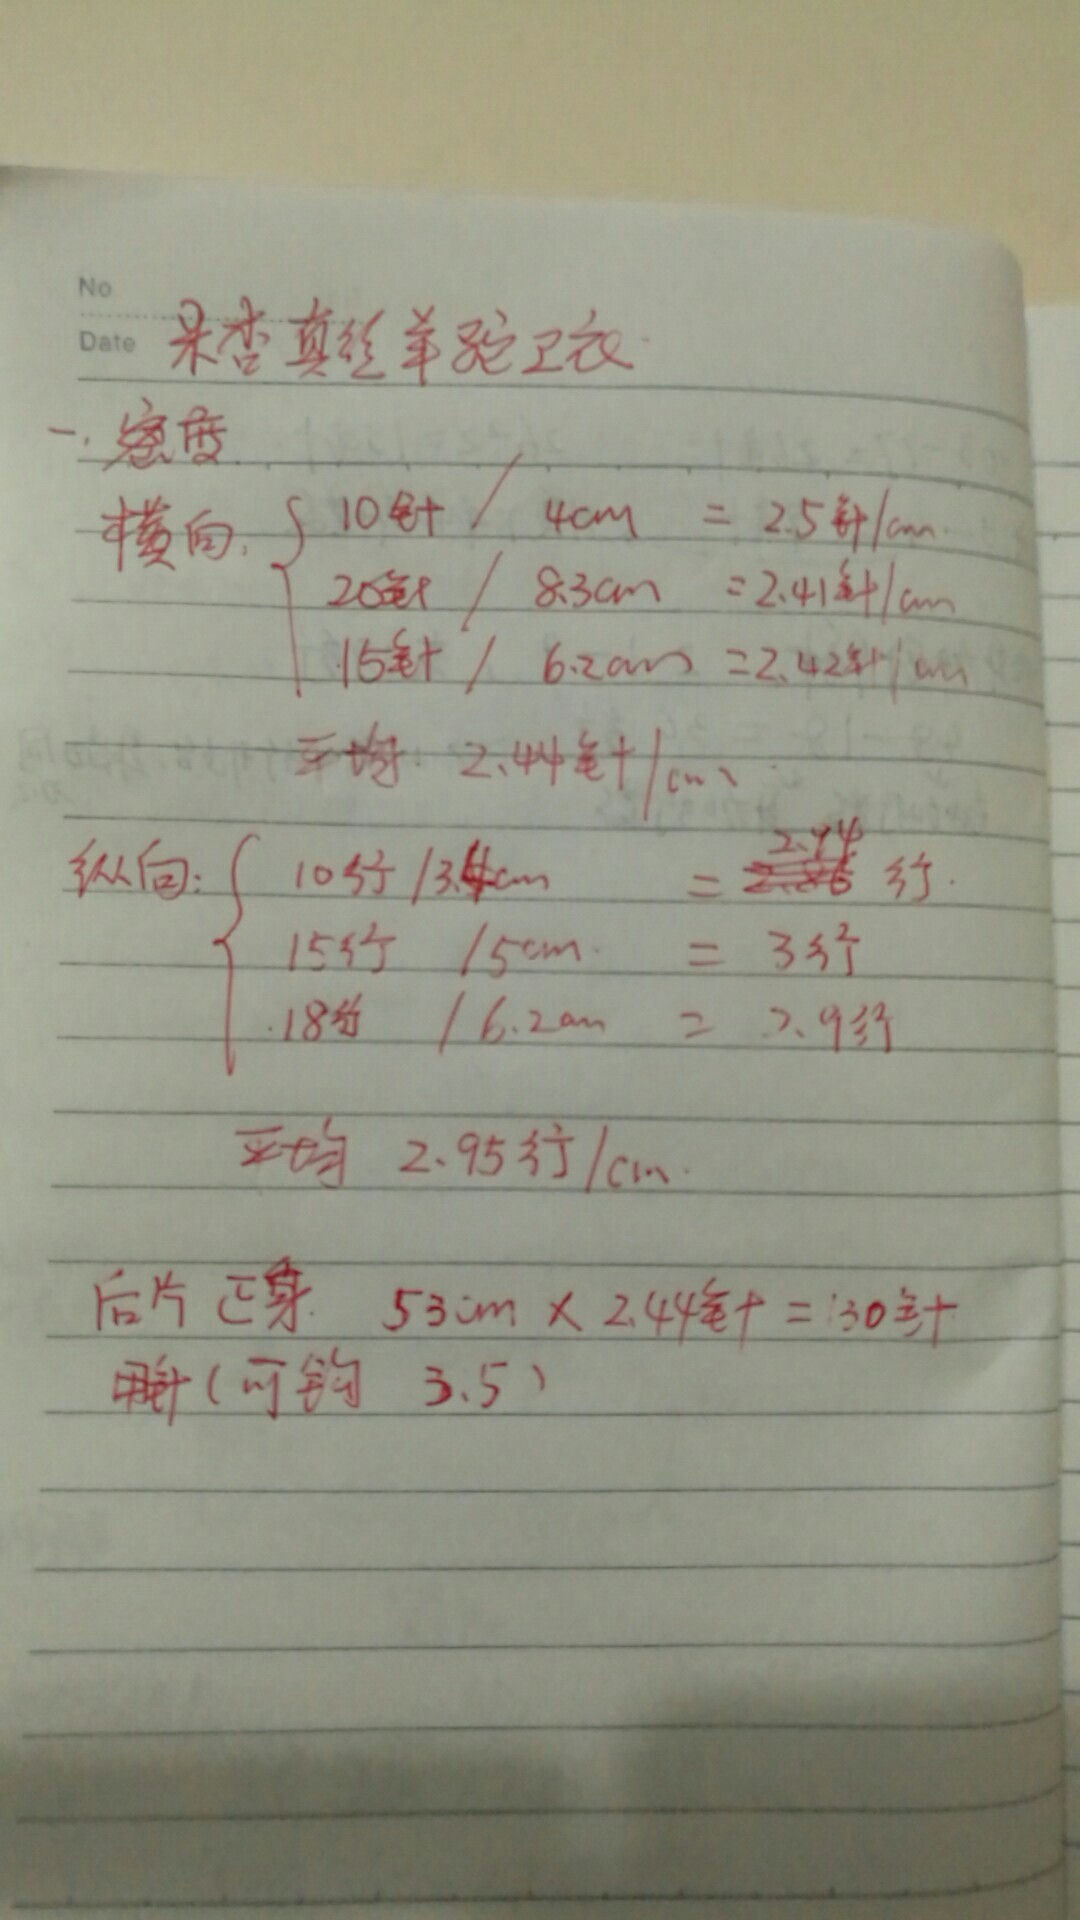 No
Date 果杏真丝羊驼卫衣.
一. 密度
横向: { 10针 / 4cm = 2.5针/cm.
20针 / 8.3cm = 2.41针/cm
15针 / 6.2cm = 2.42针/cm
平均 2.44针/cm
纵向: { 10行 /3.4cm = 2.94 行.
15行 /5cm. = 3行
18行 /6.2cm = 2.9行
平均 2.95行/cm.
后片 正身. 53cm × 2.44针 = 130针
用针(可钩 3.5)